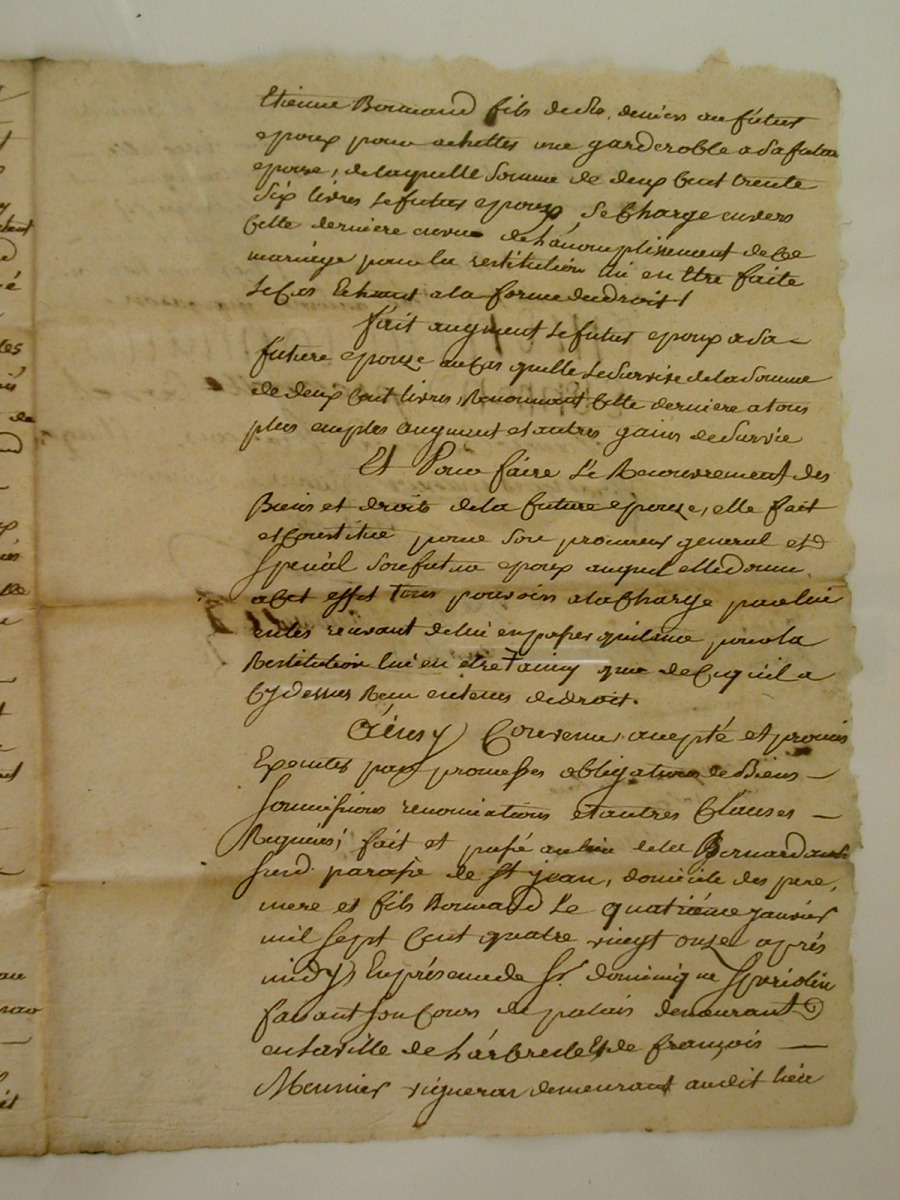 Etienne Bonnand fils de ses deniers au futur
epoux pour achetter une garderoble a sa future
epouse, de laquelle somme de deux cent trente
six livres le futur epoux se charge envers
cette derniere en vue de l'acomplissement de ce
mariage pour la restitution lui en etre faite
le cas Echeant a la forme du droit!
fait augment le futur epoux a sa —
future epouze au cas quelle le survive de la somme
de deux cent livres, Renonceant cette derniere a tous
plus amples augment et autres gains de survie
Et Pour faire le Recouvrement des
Biens et droits de la future epouze, elle fait
et constitue pour son procureur general et
special son futur epoux auquel elle donne
a cet effet tous pouvoirs a la charge par lui
en les recevant de lui en passer quittance pour la
Restitution lui en etre ainsy que de ce qu'il a
cy dessus Recu en termes de droit.
Ainsy Convenu, accepté et promis
Executer par promesses obligations de Biens —
soumissions renonciations et autres Clauses —
Requises; fait et passé au lieu de la Bernard
parroisse de St jean, domicile des pere,
mere et fils Bonnand le quatrième janvier
mil sept cent quatre vingt onze après
midy En présence de Sr. dominique
faisant son cours de palais demeurant
en la ville de L'arbresle et de françois —
Meunier vigneron demeurant audit lieu